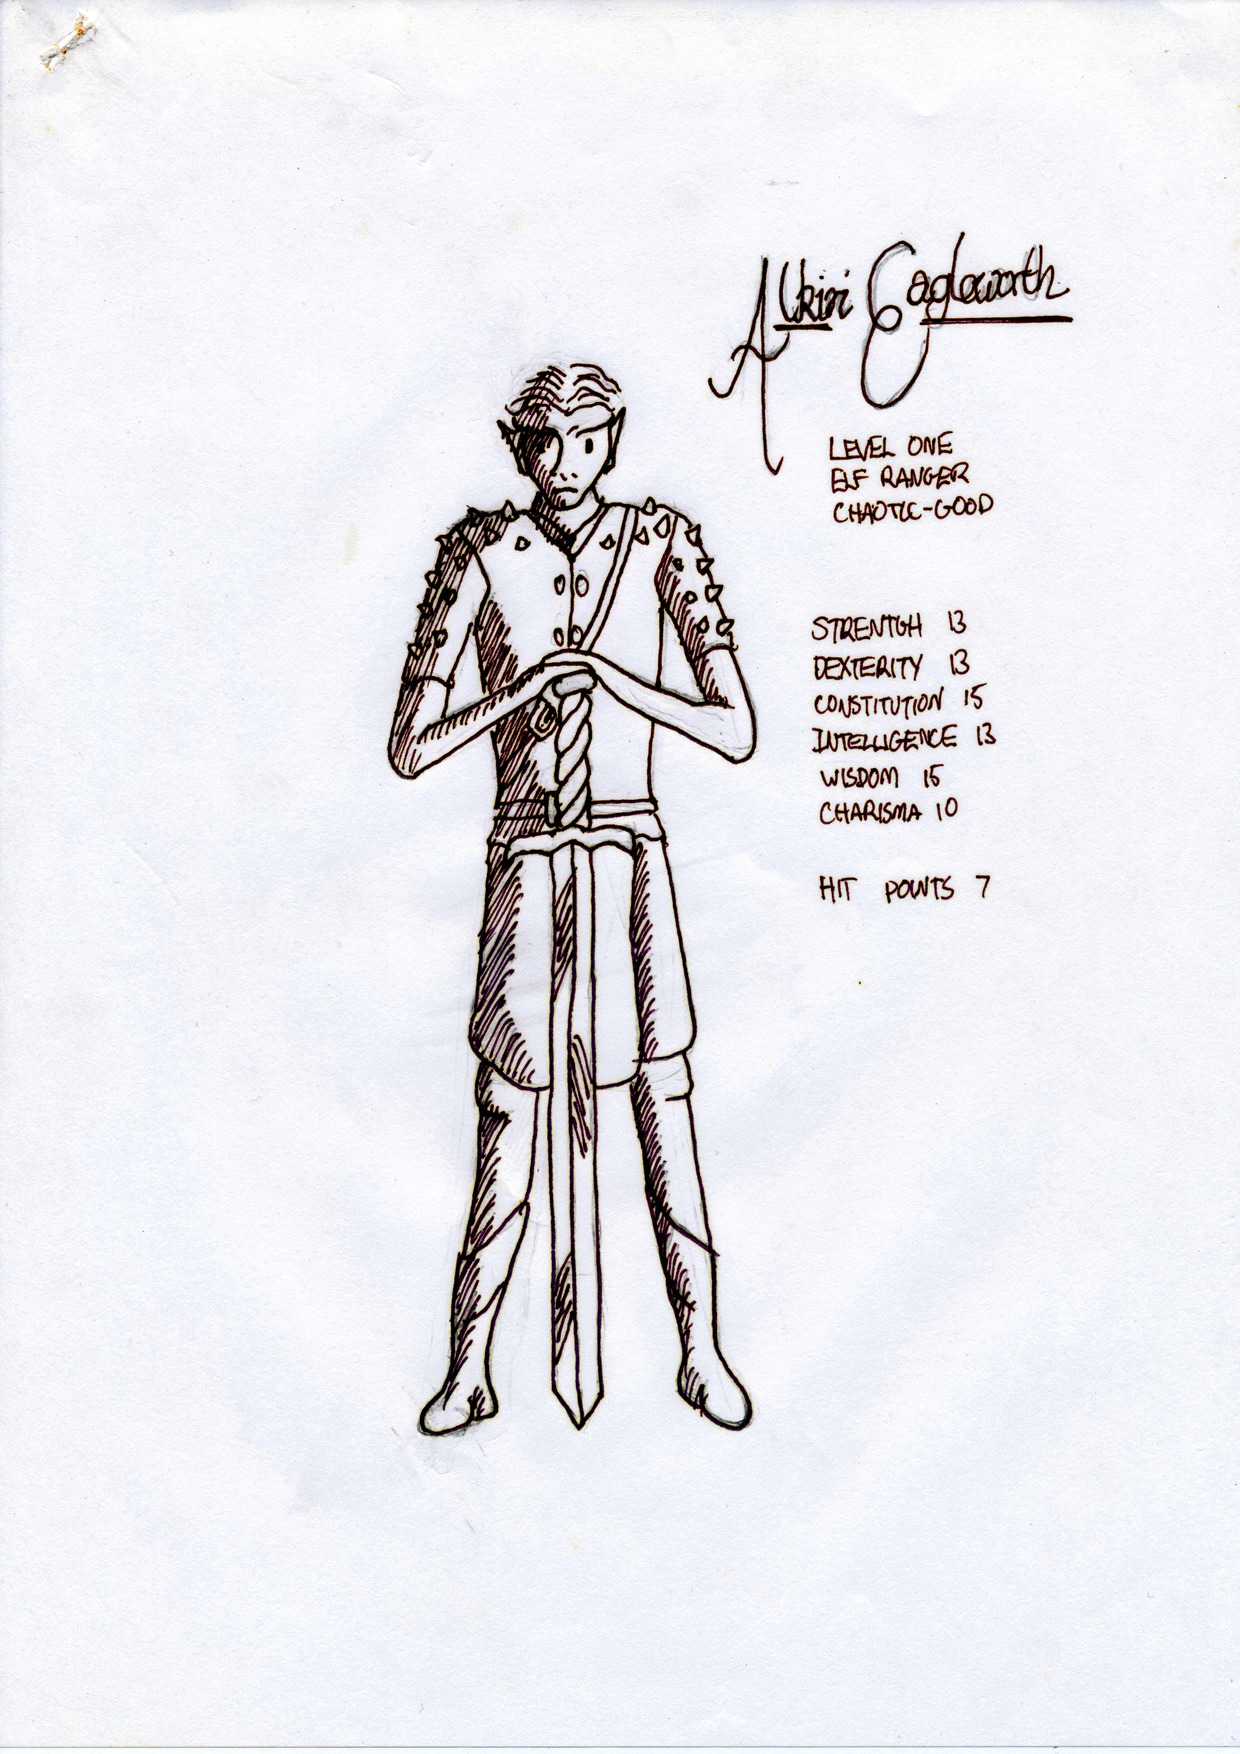 Alkiri Eagleworth
LEVEL ONE
ELF RANGER
CHAOTIC-GOOD
STRENTGH 13
DEXTERITY 13
CONSTITUTION 15
INTELLIGENCE 13
WISDOM 15
CHARISMA 10
HIT POINTS 7